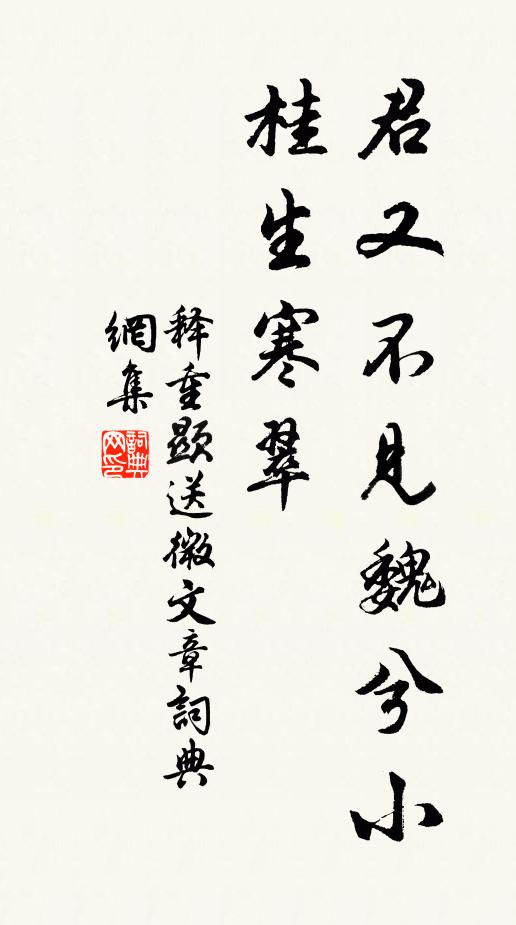 君又不见魏兮小
桂生寒翠
释重顯送微文章詞典
網集
詞典網印